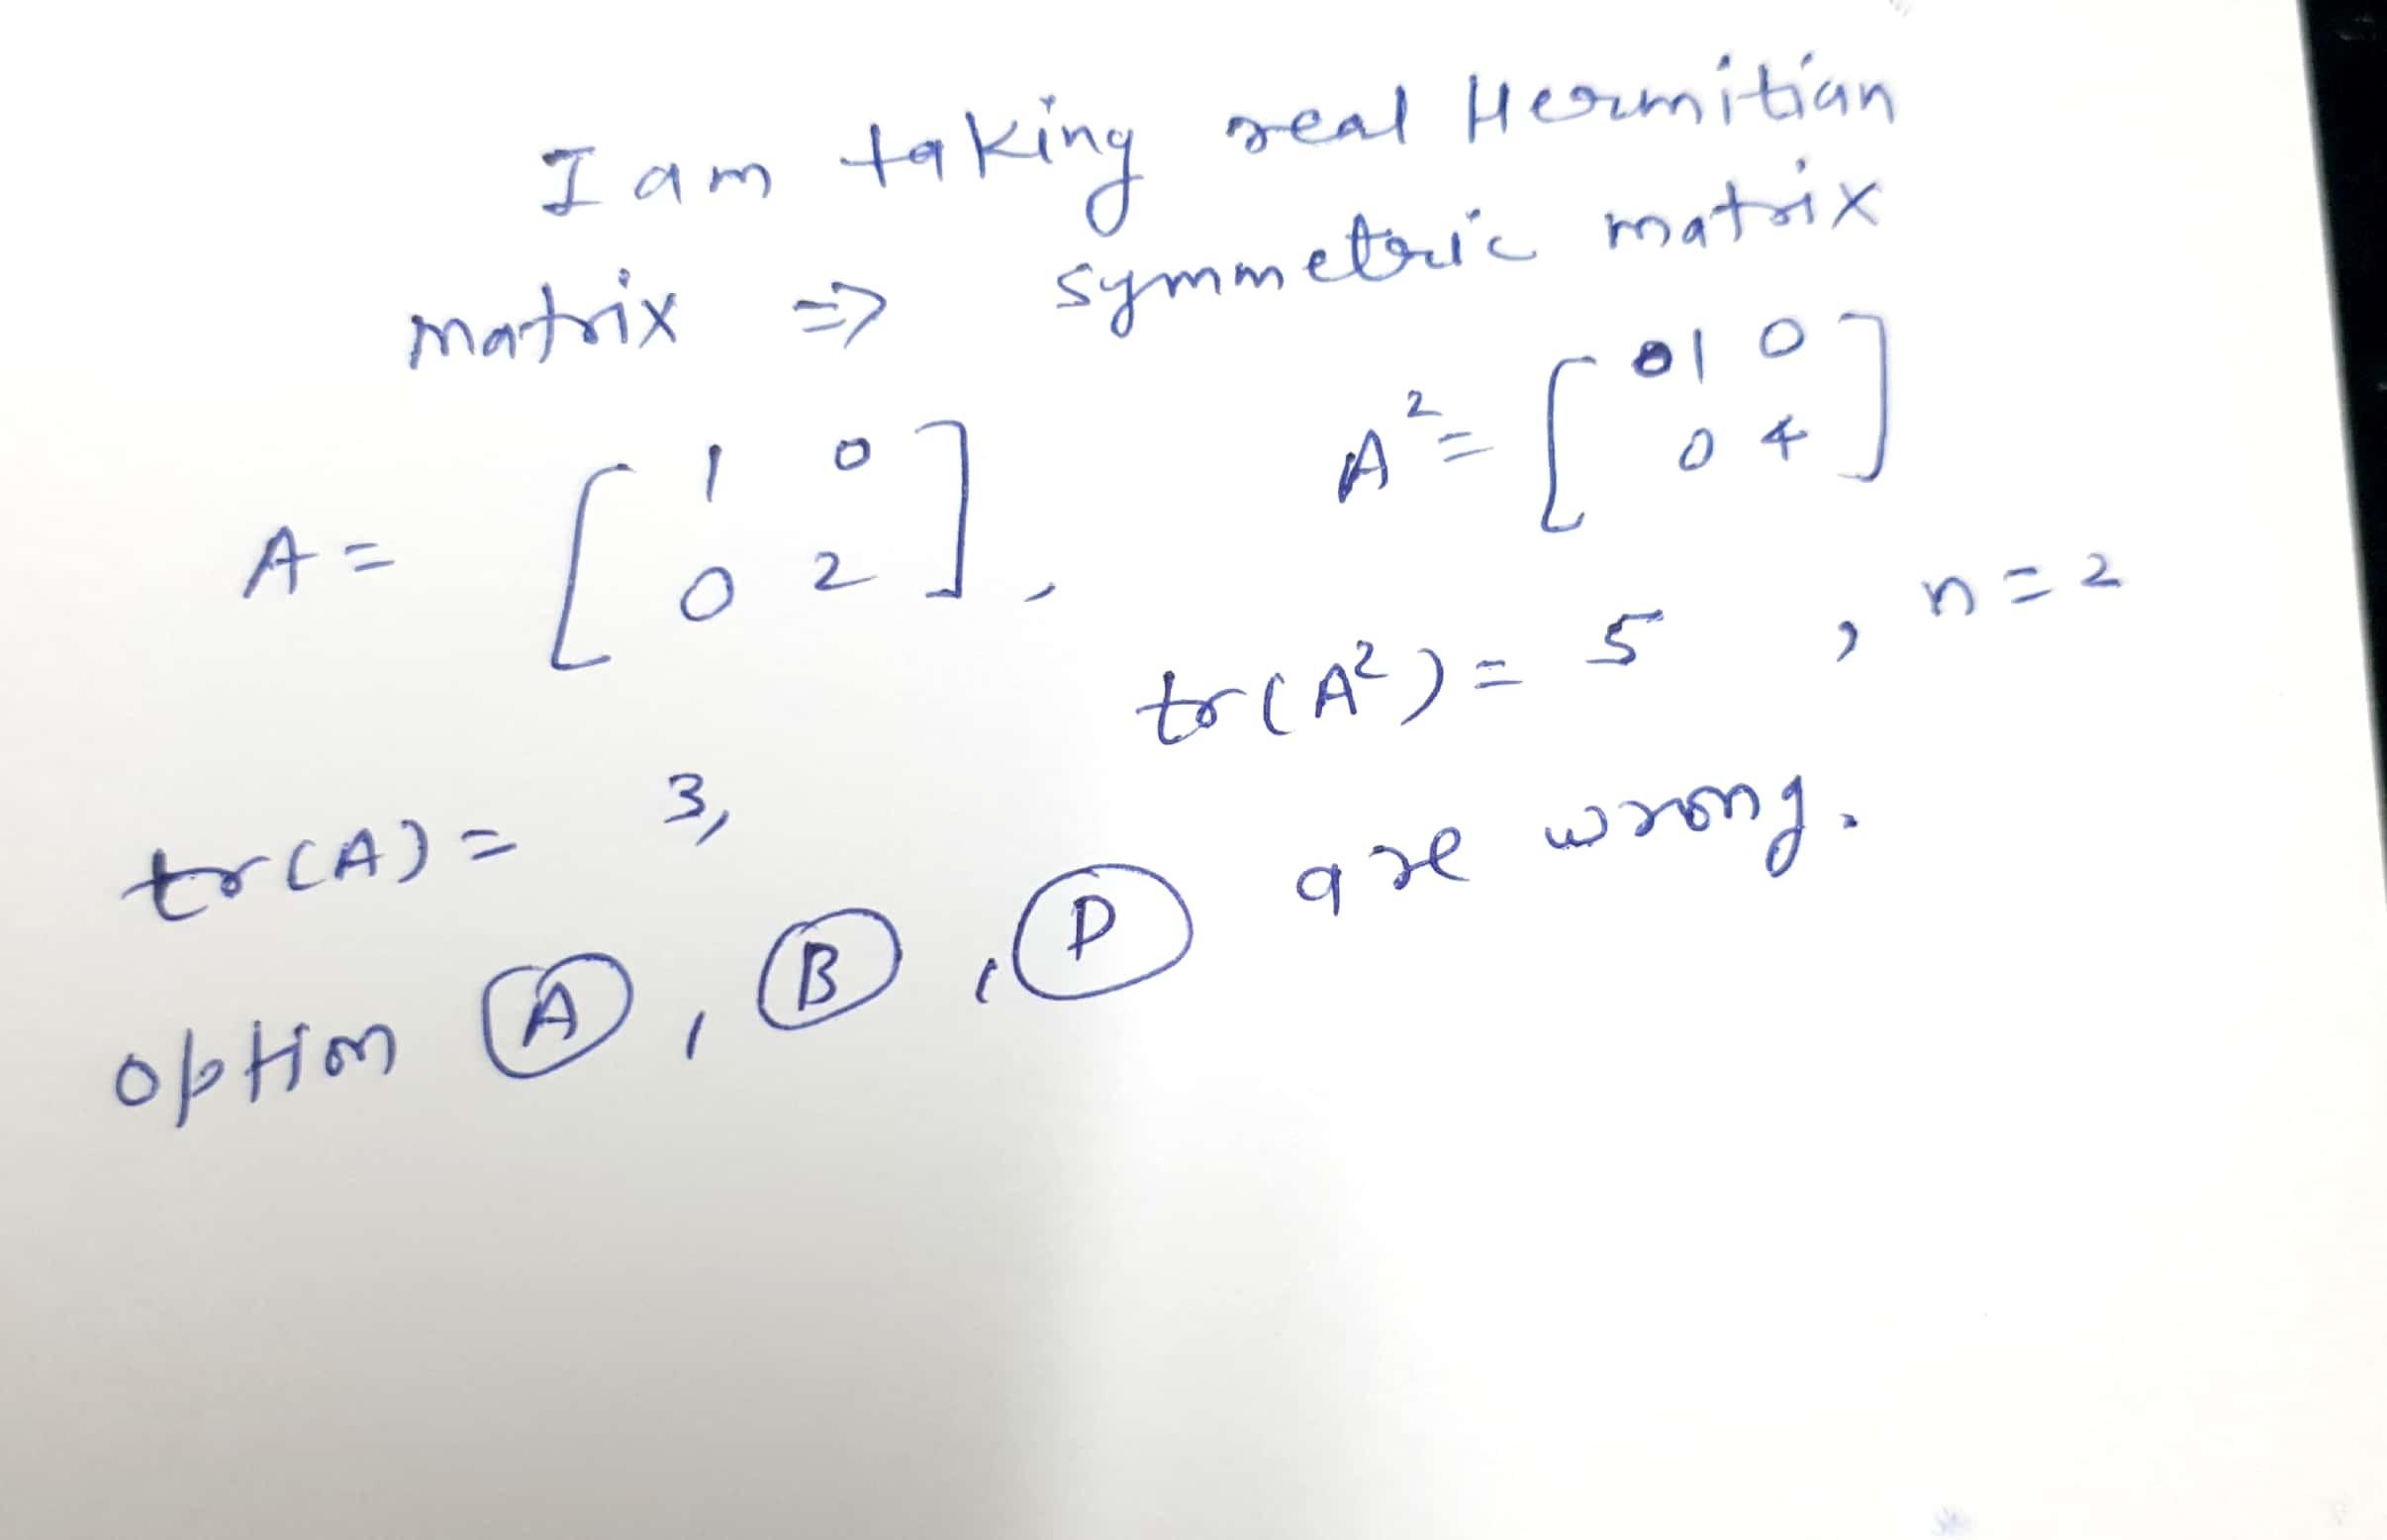 I am taking real Hermitian
matrix => symmetric matrix
A = [ 1 0
0 2 ] , A² = [ 1 0
0 4 ]
tr(A) = 3, tr(A²) = 5 , n = 2
option A , B , D are wrong.